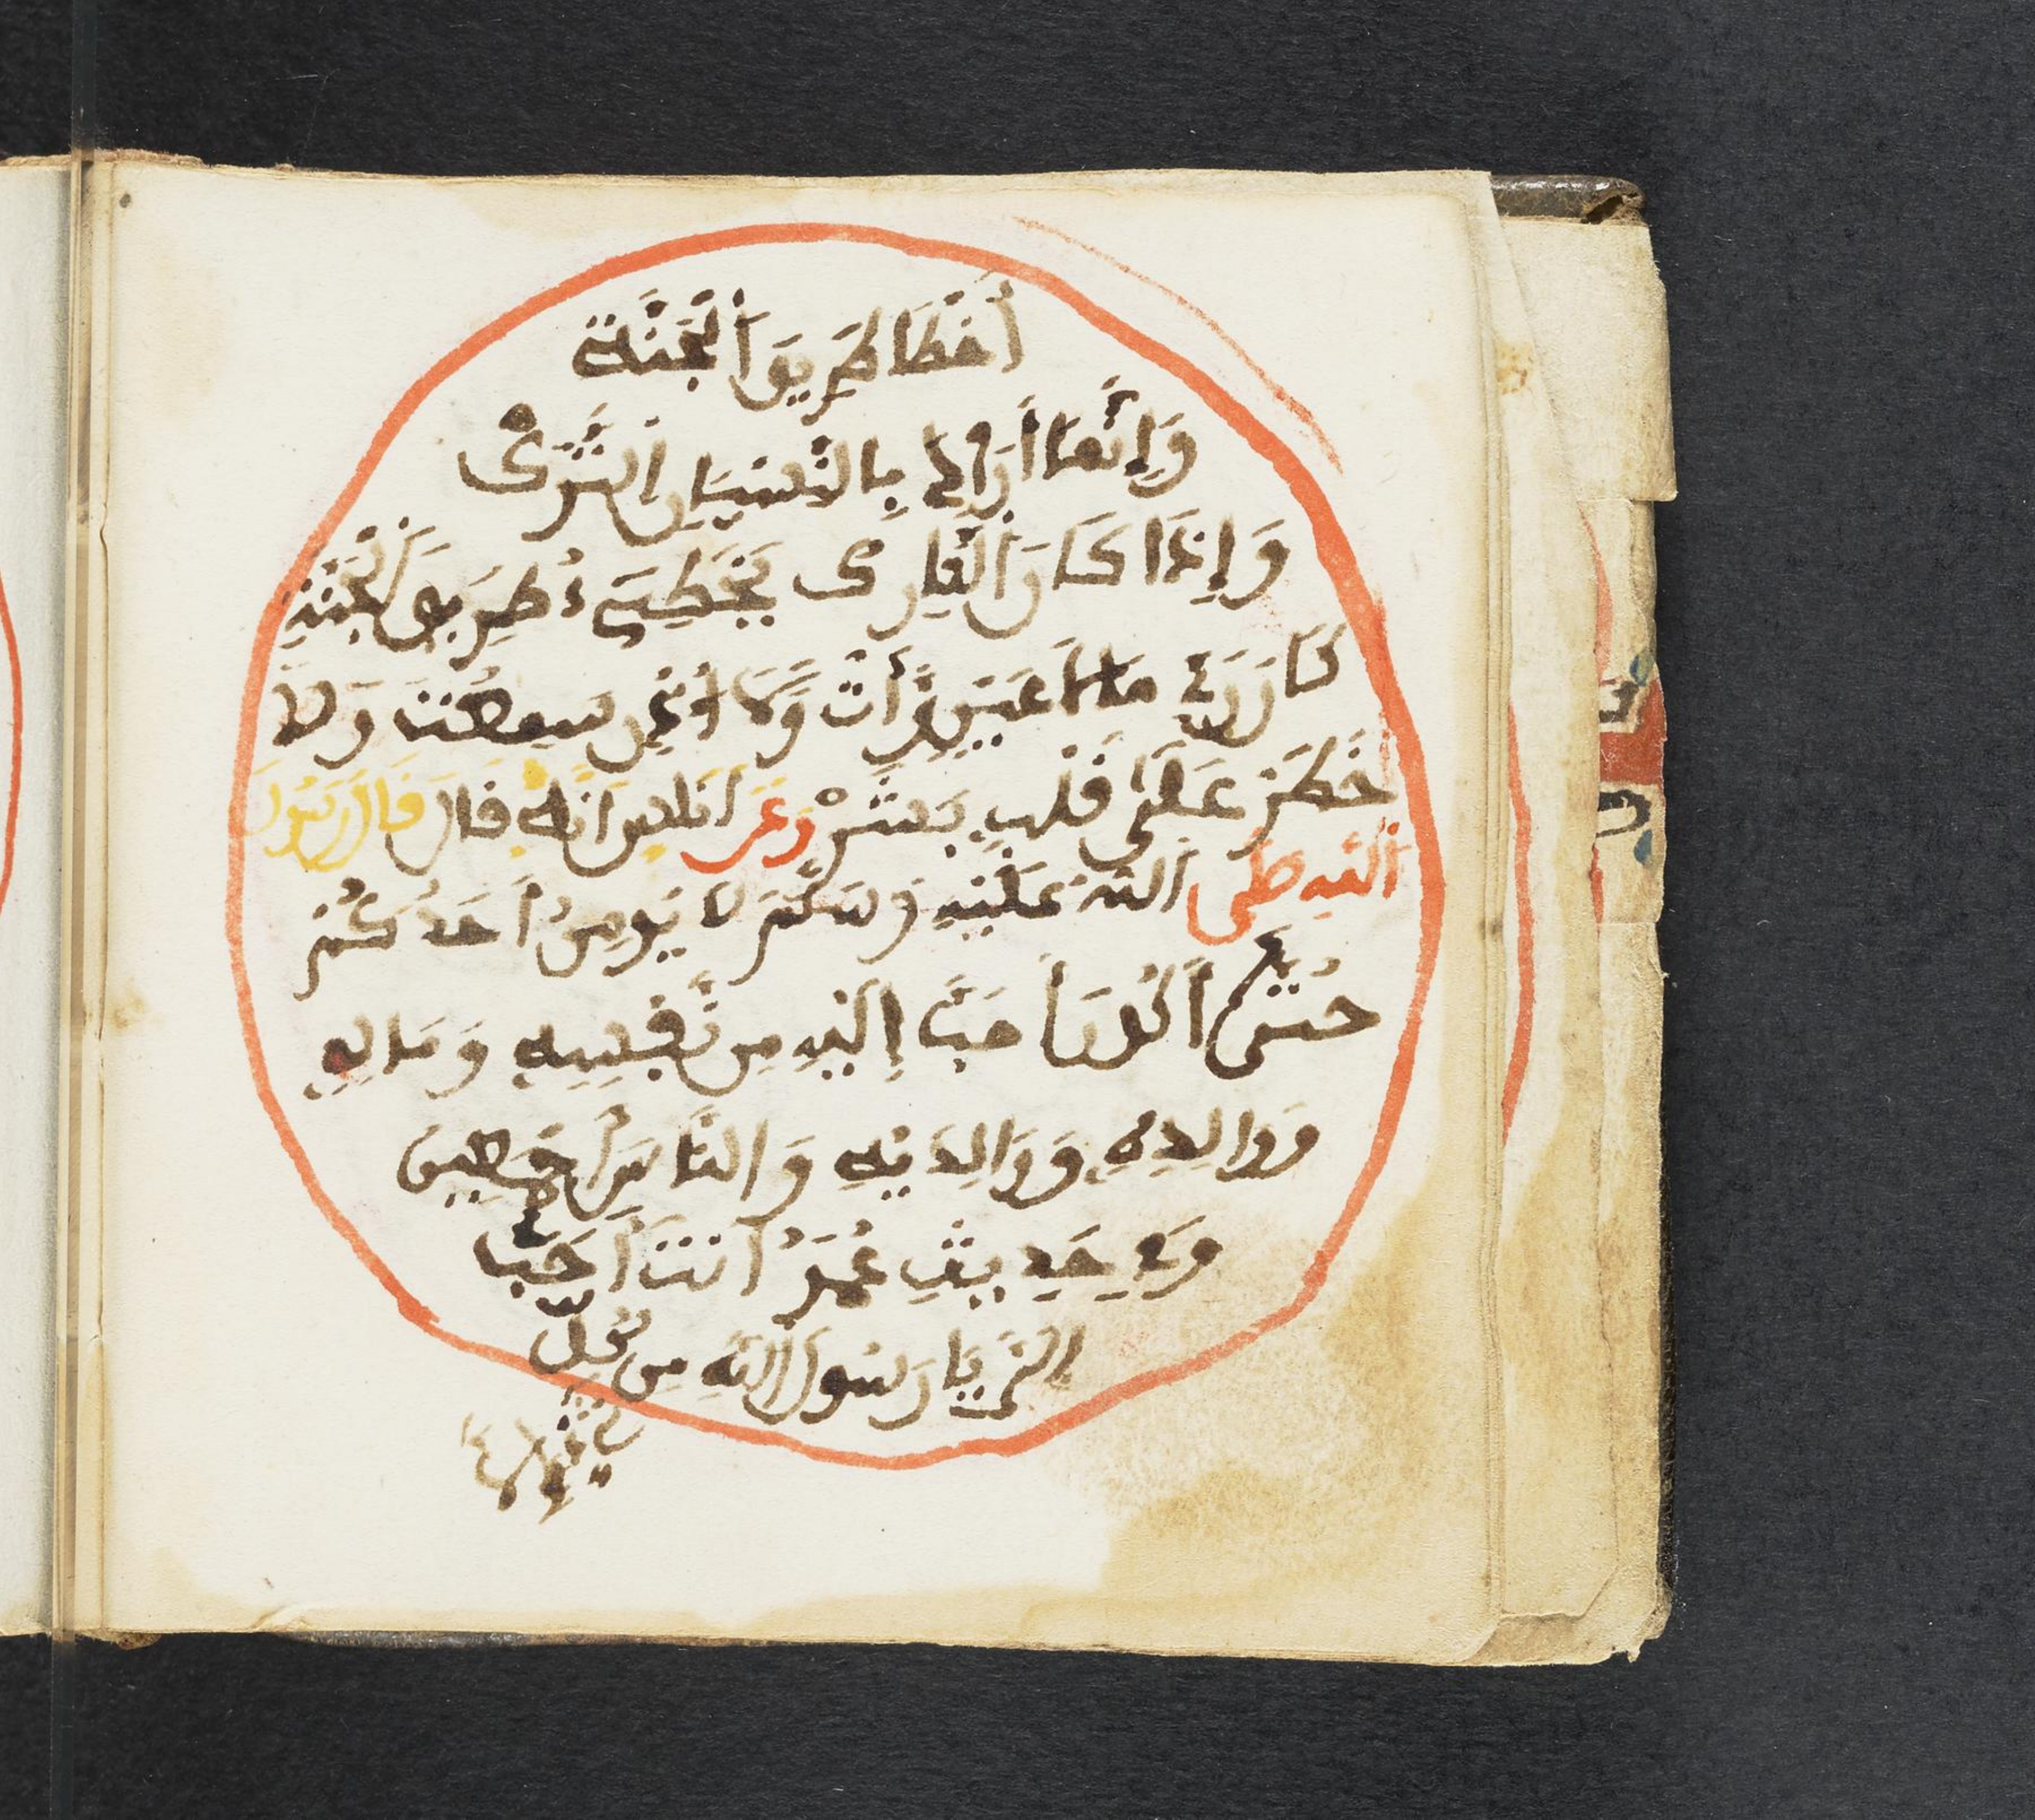 أخطا طريق الجنة
وإنما أراد بالنسيان الترك
وإذا كان القارى يخطىء طريق الجنة
كان له ما لا عين رأت ولا أذن سمعت ولا
خطر على قلب بشر وعن أنه قال قال رسول
الله صلى الله عليه وسلم لا يومن أحدكم
حتى أكون أحب إليه من نفسه وماله
وولده ووالديه والناس أجمعين
وفي حديث عمر أنت أحب
إلي يا رسول الله من كل
شيء إلا